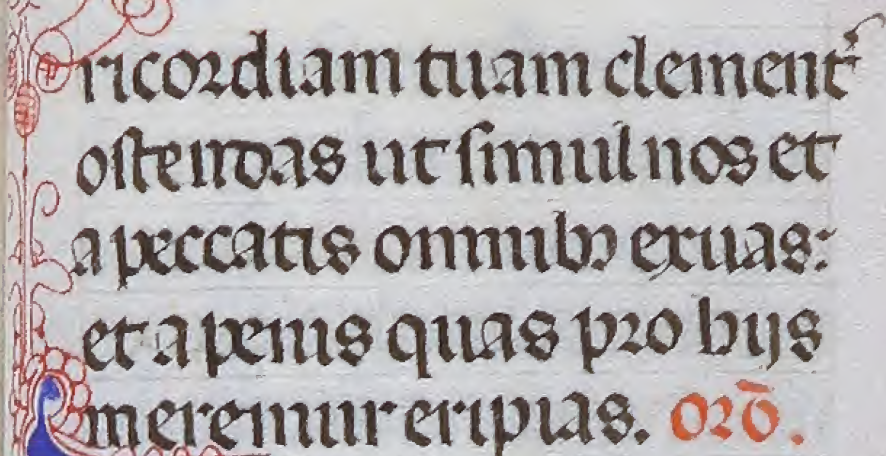 ricordiam tuam clement᷑
ostendas ut simul nos et
a peccatis omnibꝫ exuas:
et a penis quas pro hijs
meremur eripias. Orõ.